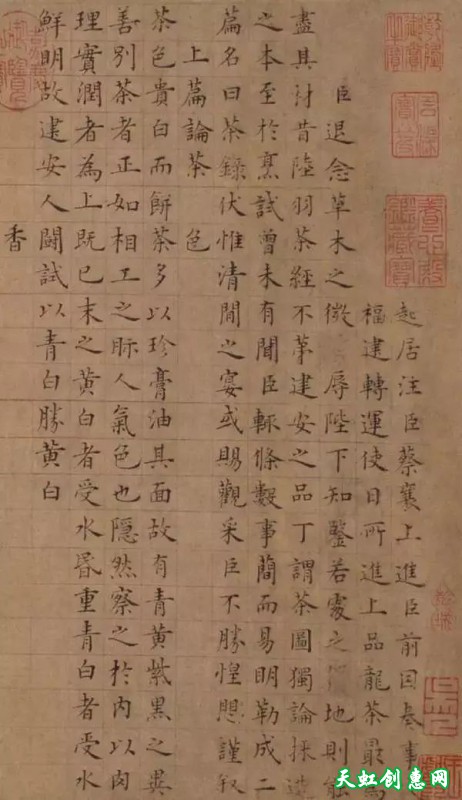 起居注臣蔡襄上進臣前因奏事
福建轉運使日所進上品龍茶最為
臣退念草木之微 辱陛下知鑒若處之 地則能
盡其材昔陸羽茶經不第建安之品丁謂茶圖獨論採造
之本至於烹試曾未有聞臣輒條數事簡而易明勒成二
篇名曰茶錄伏惟清閒之宴或賜觀采臣不勝惶懼謹叙
上篇論茶 色
茶色貴白而餅茶多以珍膏油其面故有青黃紫黑之異
善別茶者正如相工之眎人氣色也隱然察之於內以肉
理實潤者為上既已末之黃白者受水昬重青白者受水
鮮明故建安人鬪試以青白勝黃白
香
天虹创惠网